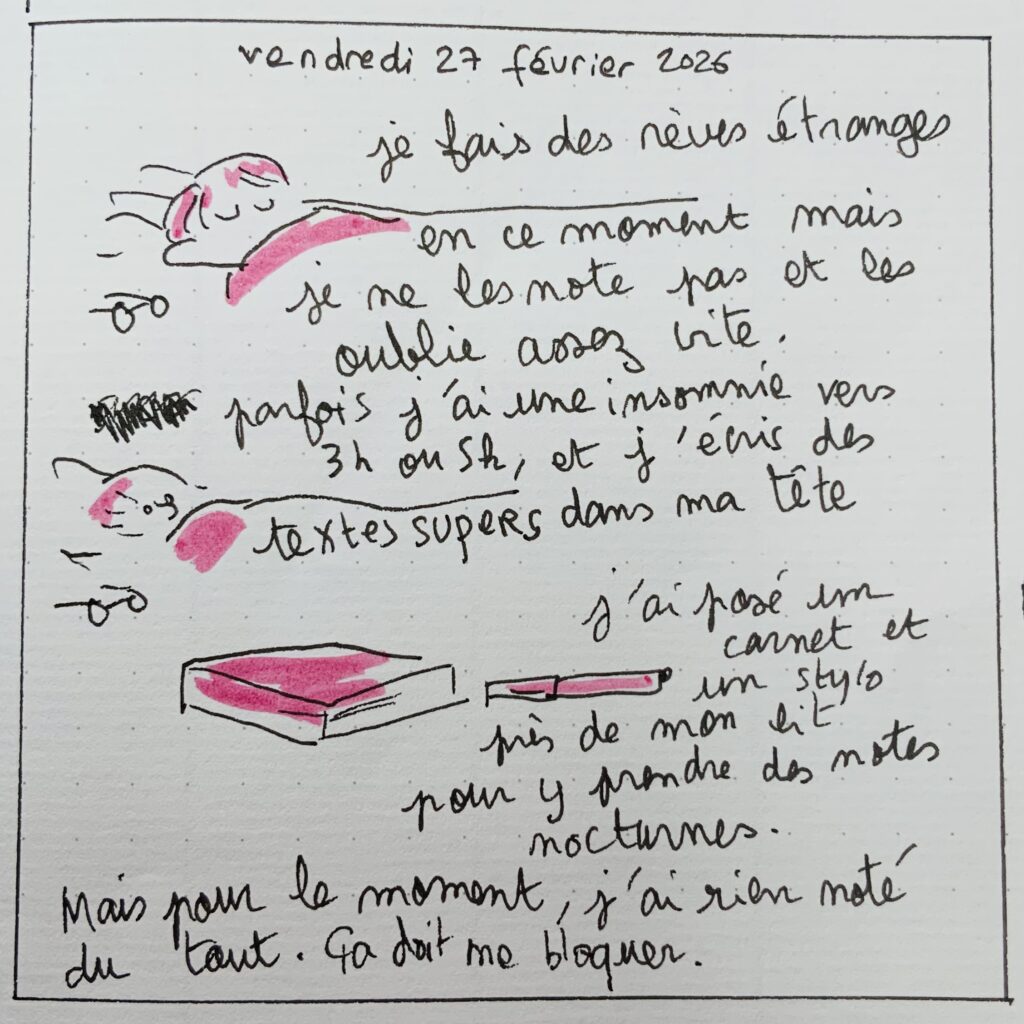 vendredi 27 février 2026
je fais des rêves étranges
en ce moment mais
je ne les note pas et les
oublie assez vite.
parfois j'ai une insomnie vers
3h ou 5h, et j'écris des
textes supers dans ma tête
j'ai posé un
carnet et
un stylo
près de mon lit
pour y prendre des notes
nocturnes.
Mais pour le moment, j'ai rien noté
du tout. Ça doit me bloquer.